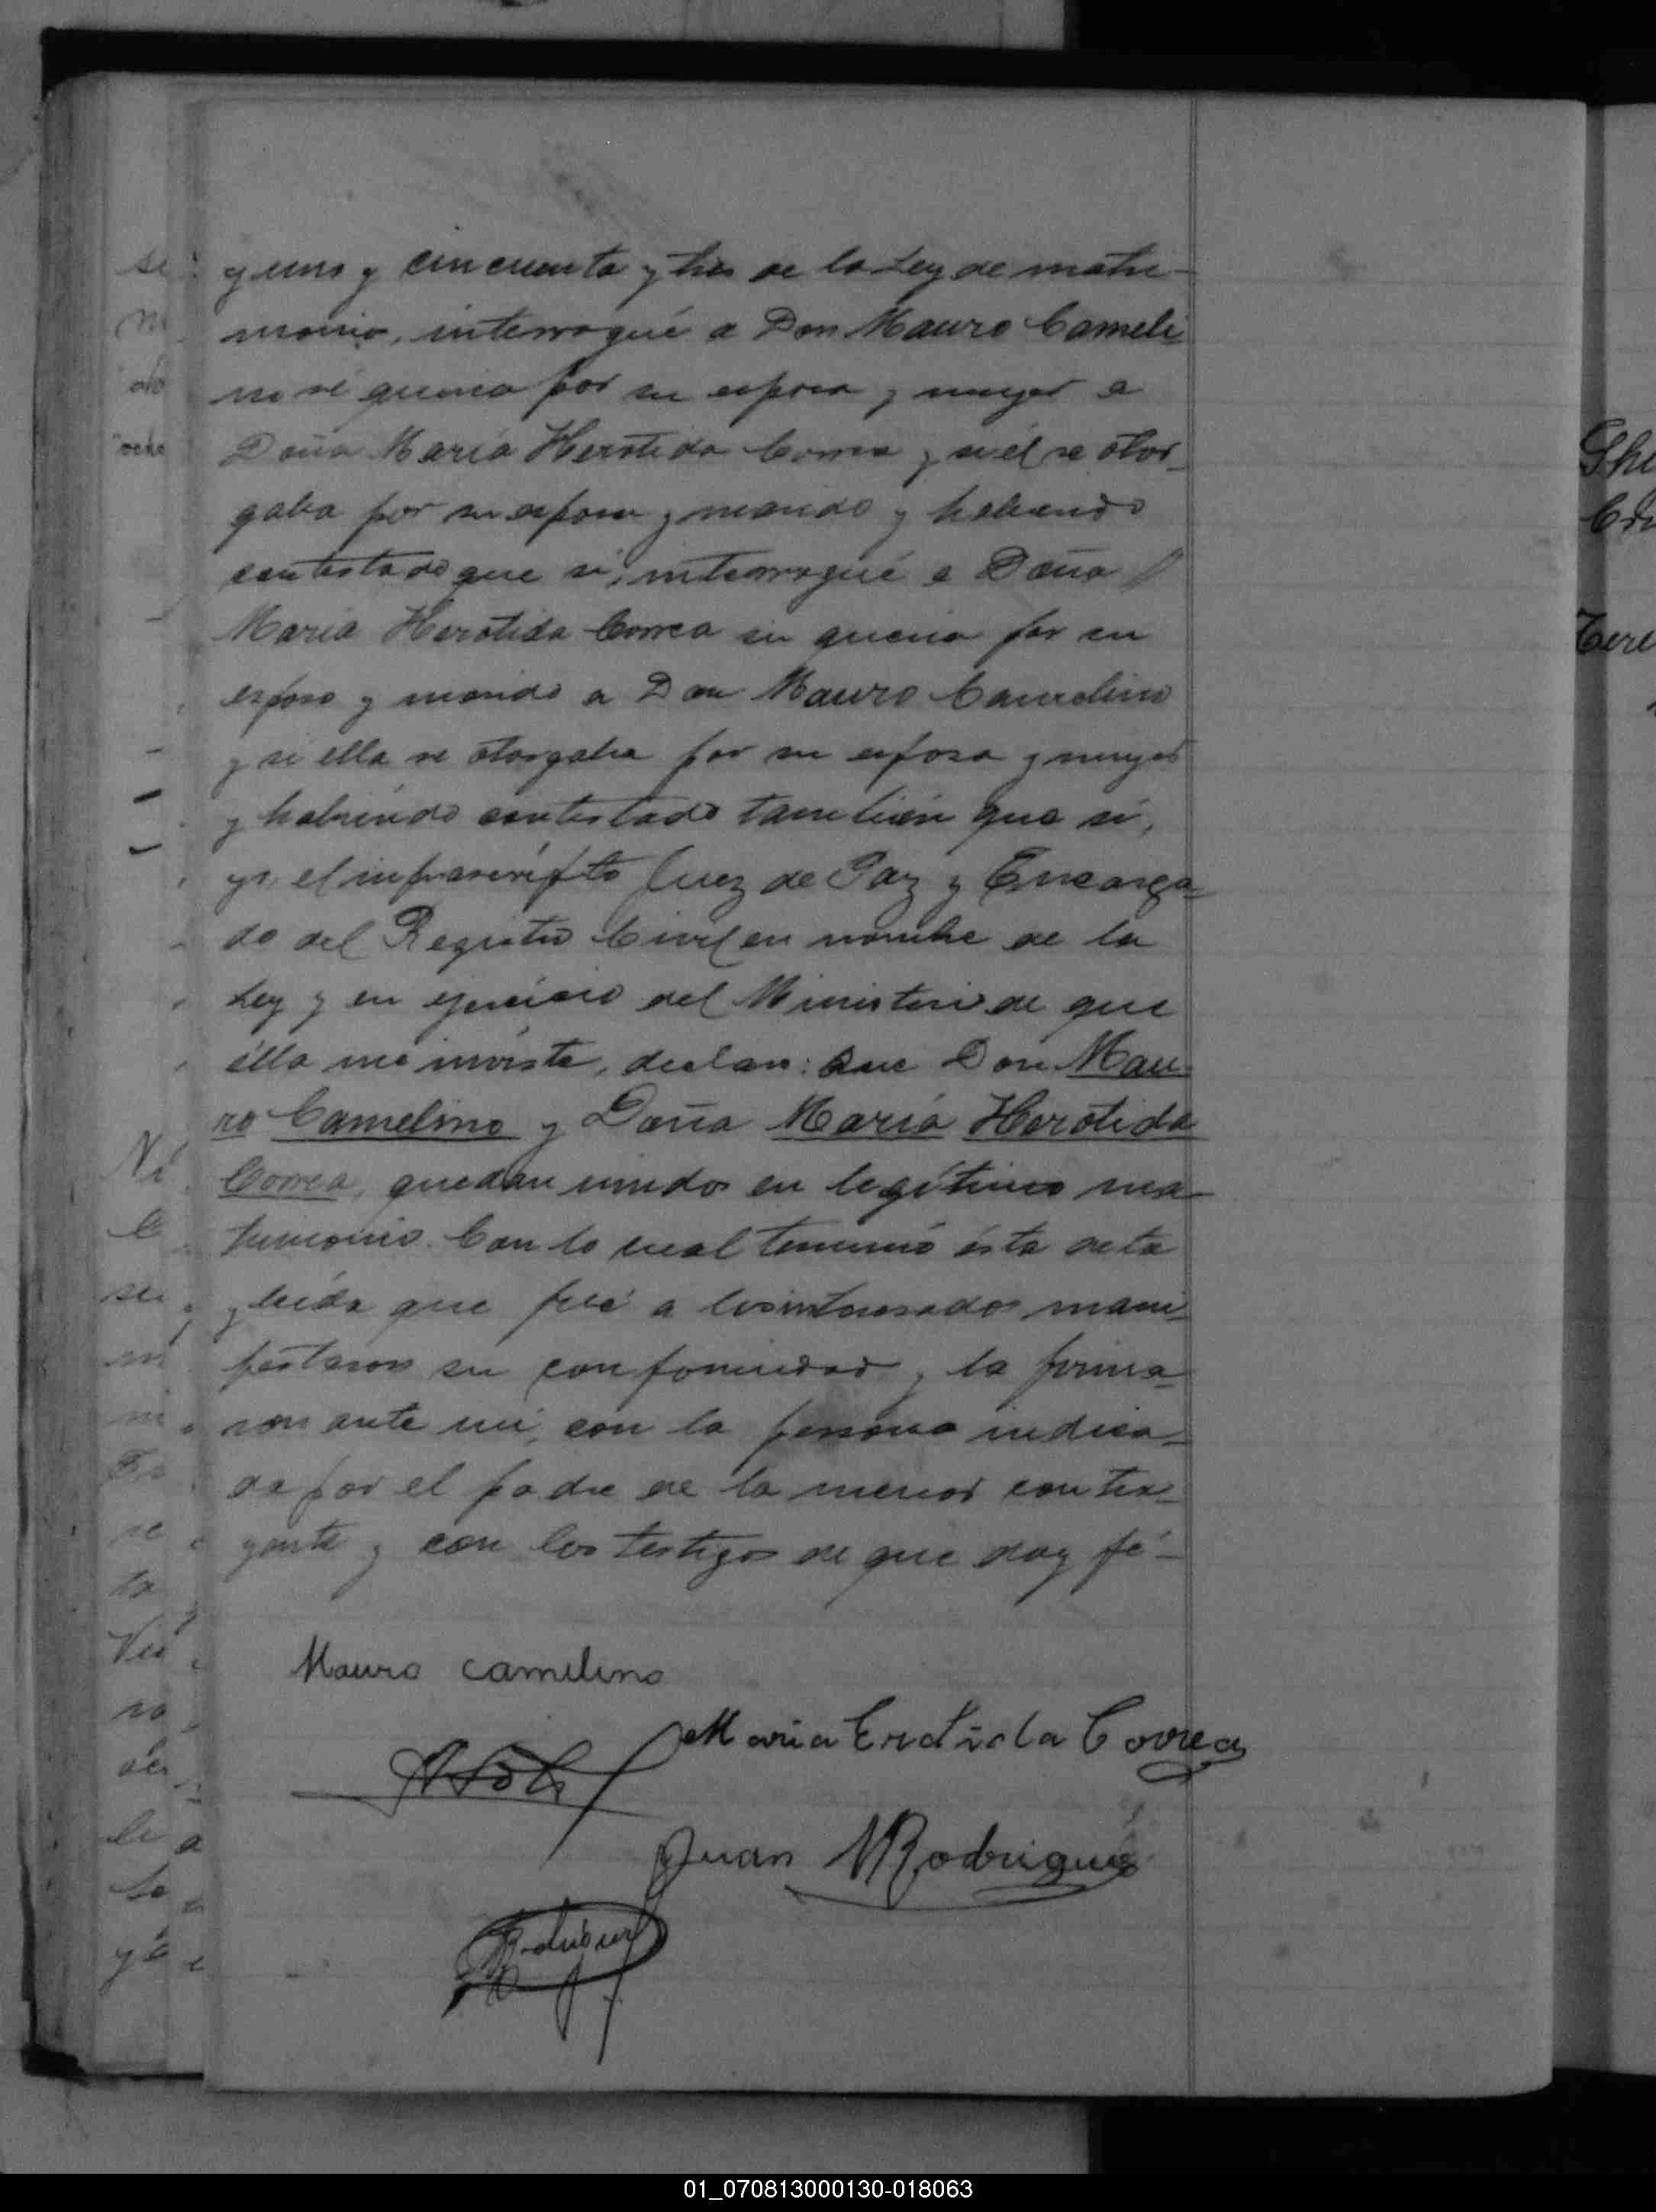 y uno y cincuenta y tres de la Ley de matri-
monio, interrogué a Don Mauro Cameli-
no si queria por su esposa y muger a
Doña María Herotida Correa y si él se otor-
gaba por su esposo y marido y habiendo
contestado que sí, interrogué a Doña
María Herotida Correa si queria por su
esposo y marido a Don Mauro Camelino
y si ella se otorgaba por su esposa y muger
y habiendo contestado también que sí,
yo, el infrascripto Juez de Paz y Encarga-
do del Registro Civil en nombre de la
Ley y en ejercicio del Ministerio de que
élla me inviste, declaro: Que Don Mau-
ro Camelino y Doña María Herotida
Correa, quedan unidos en legítimo ma-
trimonio. Con lo cual terminó ésta acta
y leída que fué a los interesados mani-
festaron su conformidad y la firma-
ron ante mí, con la persona indica-
da por el padre de la menor contra-
yente y con los testigos de que doy fé-
Mauro Camelino
Maria Erotida Correa
Juan Rodriguez
01_070813000130-018063